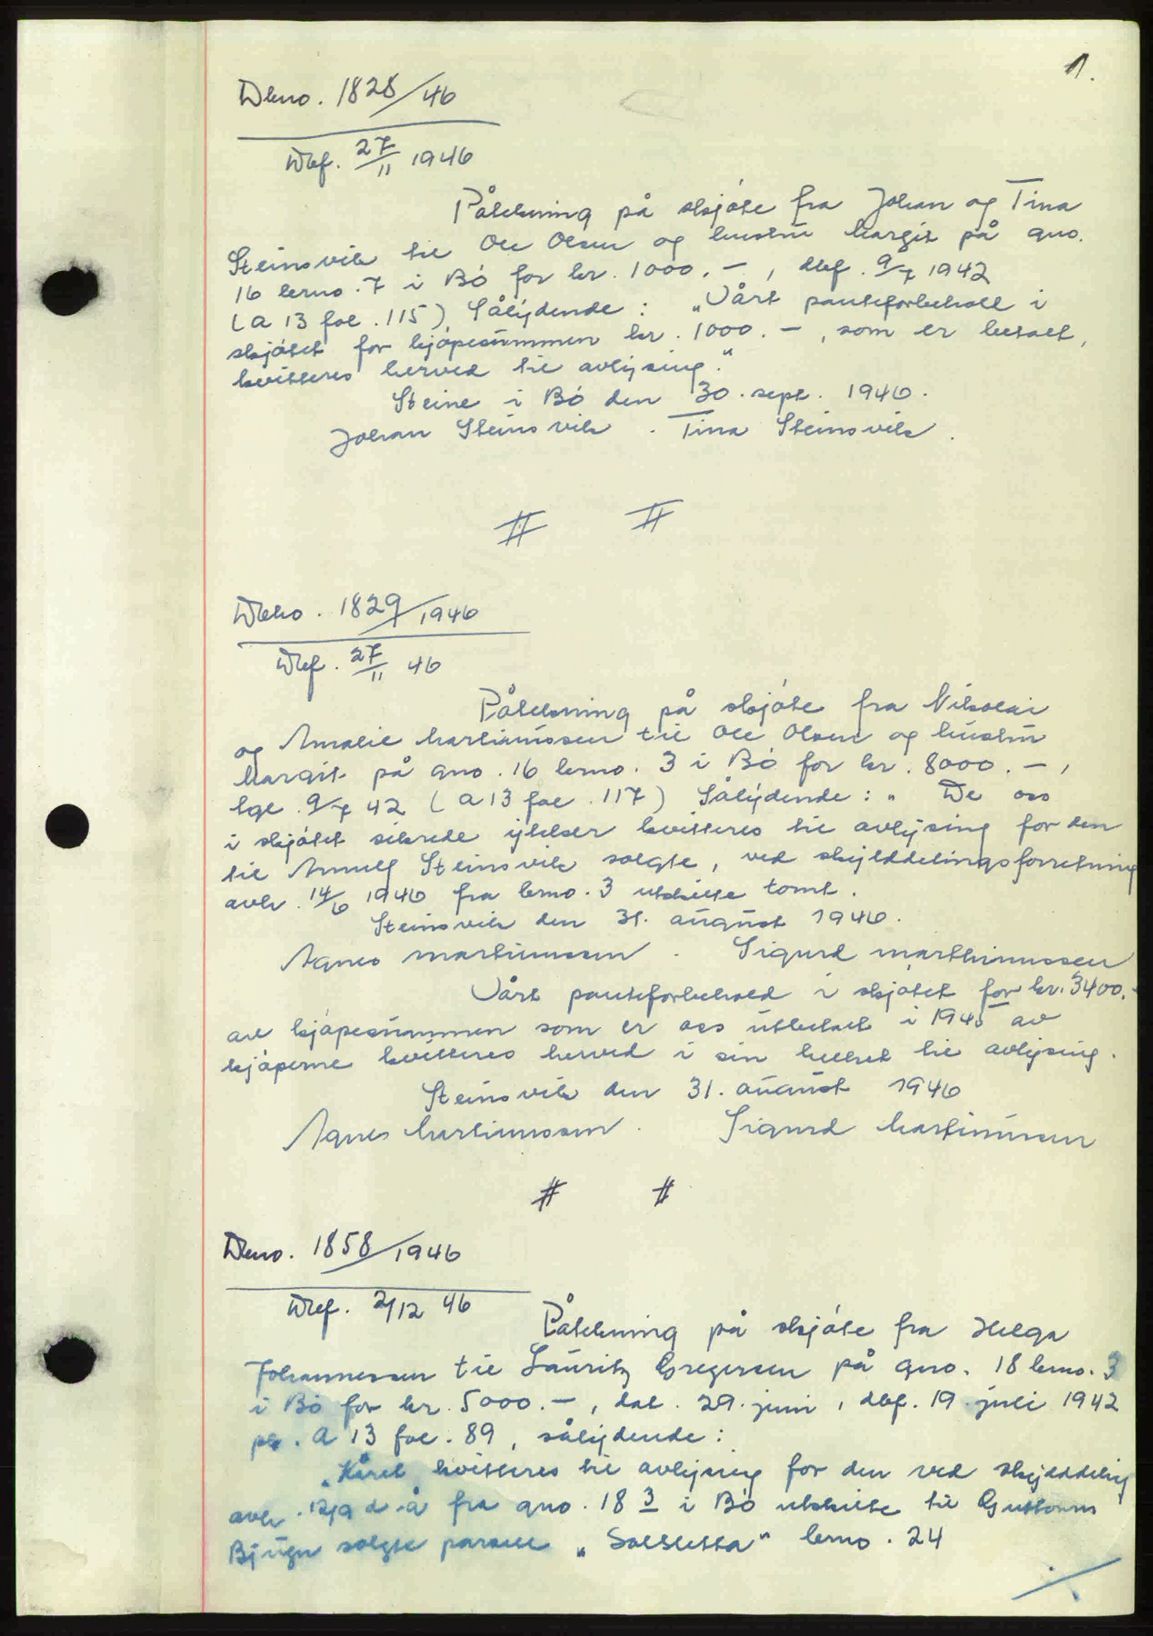 1.
Dbno. 1828/46
Dbf. 27/11 1946
Påtekning på skjøte fra Johan og Tina
Steinsvik til Ole Olsen og hustru Margit på gno.
16 brno. 7 i Bø for kr. 1000.-, dbf. 9/7 1942
(A 13 fol. 115) Sålydende: "Vårt panteforbehold i
skjøtet for kjøpesummen kr. 1000.-, som er betalt,
kvitteres herved til avlysing."
Steine i Bø den 30. sept. 1946.
Johan Steinsvik. Tina Steinsvik.
# #
Dbno. 1829/1946
Dbf. 27/11 46
Påtekning på skjøte fra Nikolai
og Amalie Martinussen til Ole Olsen og hustru
Margit på gno. 16 brno. 3 i Bø for kr. 8000.-,
tgl. 9/7 42 (A 13 fol. 117) Sålydende: "De oss
i skjøtet sikrede ytelser kvitteres til avlysing for den
til Arnulf Steinsvik solgte, ved skylddelingsforretning
avh. 14/6 1946 fra brno. 3 utskilte tomt.
Steinsvik den 31. august 1946.
Agnes Martinussen. Sigurd Marthinussen
Vårt panteforbehold i skjøtet for kr. 3400.-
av kjøpesummen som er oss utbetalt i 1945 av
kjøperne kvitteres herved i sin helhet til avlysing.
Steinsvik den 31. august 1946
Agnes Martinussen. Sigurd Martinussen
# #
Dbno. 1858/1946
Dbf. 2/12 46
Påtekning på skjøte fra Helga
Johannessen til Lauritz Gregersen på gno. 18 brno. 3
i Bø for kr. 5000.-, dat. 29. juni, dbf. 19 juli 1942
pb. A 13 fol. 89, sålydende:
"Kåret kvitteres til avlysing for den ved skylddeling
avh. 12/9 d å fra gno. 18 3 i Bø utskilte til Guttorm
Bjugn solgte parsell "Solsletta" brno. 24